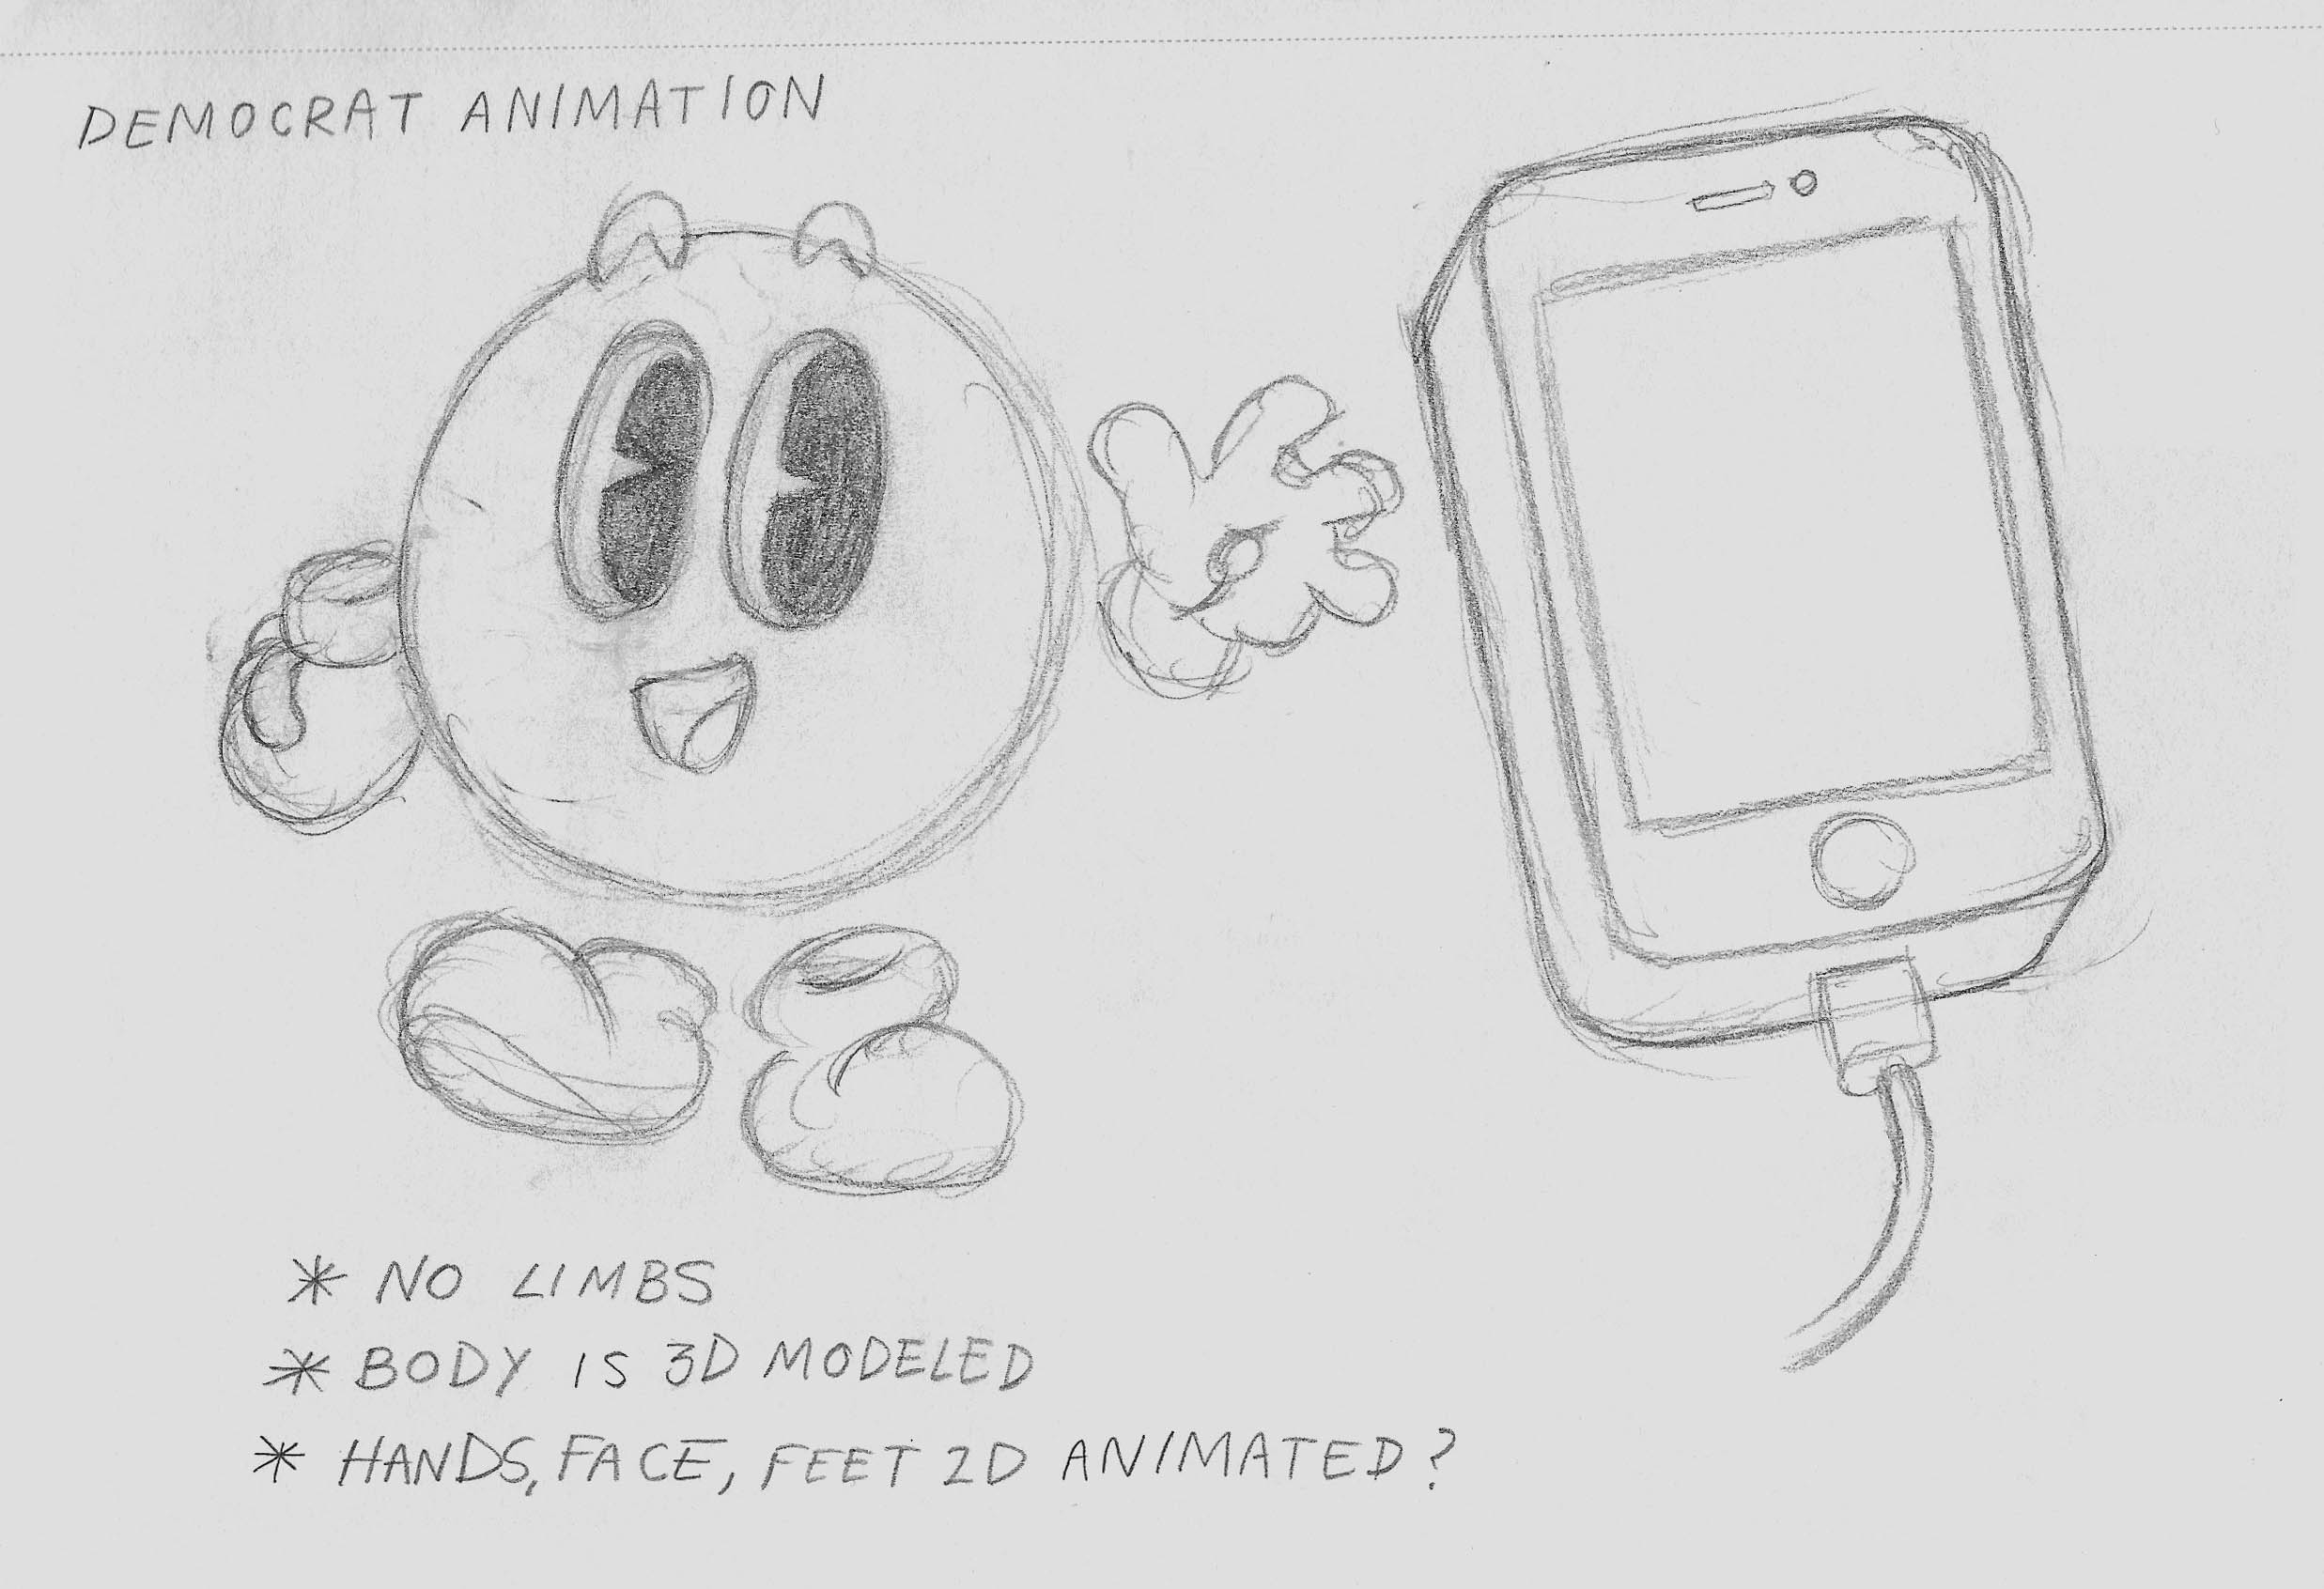 DEMOCRAT ANIMATION
* NO LIMBS
* BODY IS 3D MODELED
* HANDS, FACE, FEET 2D ANIMATED?